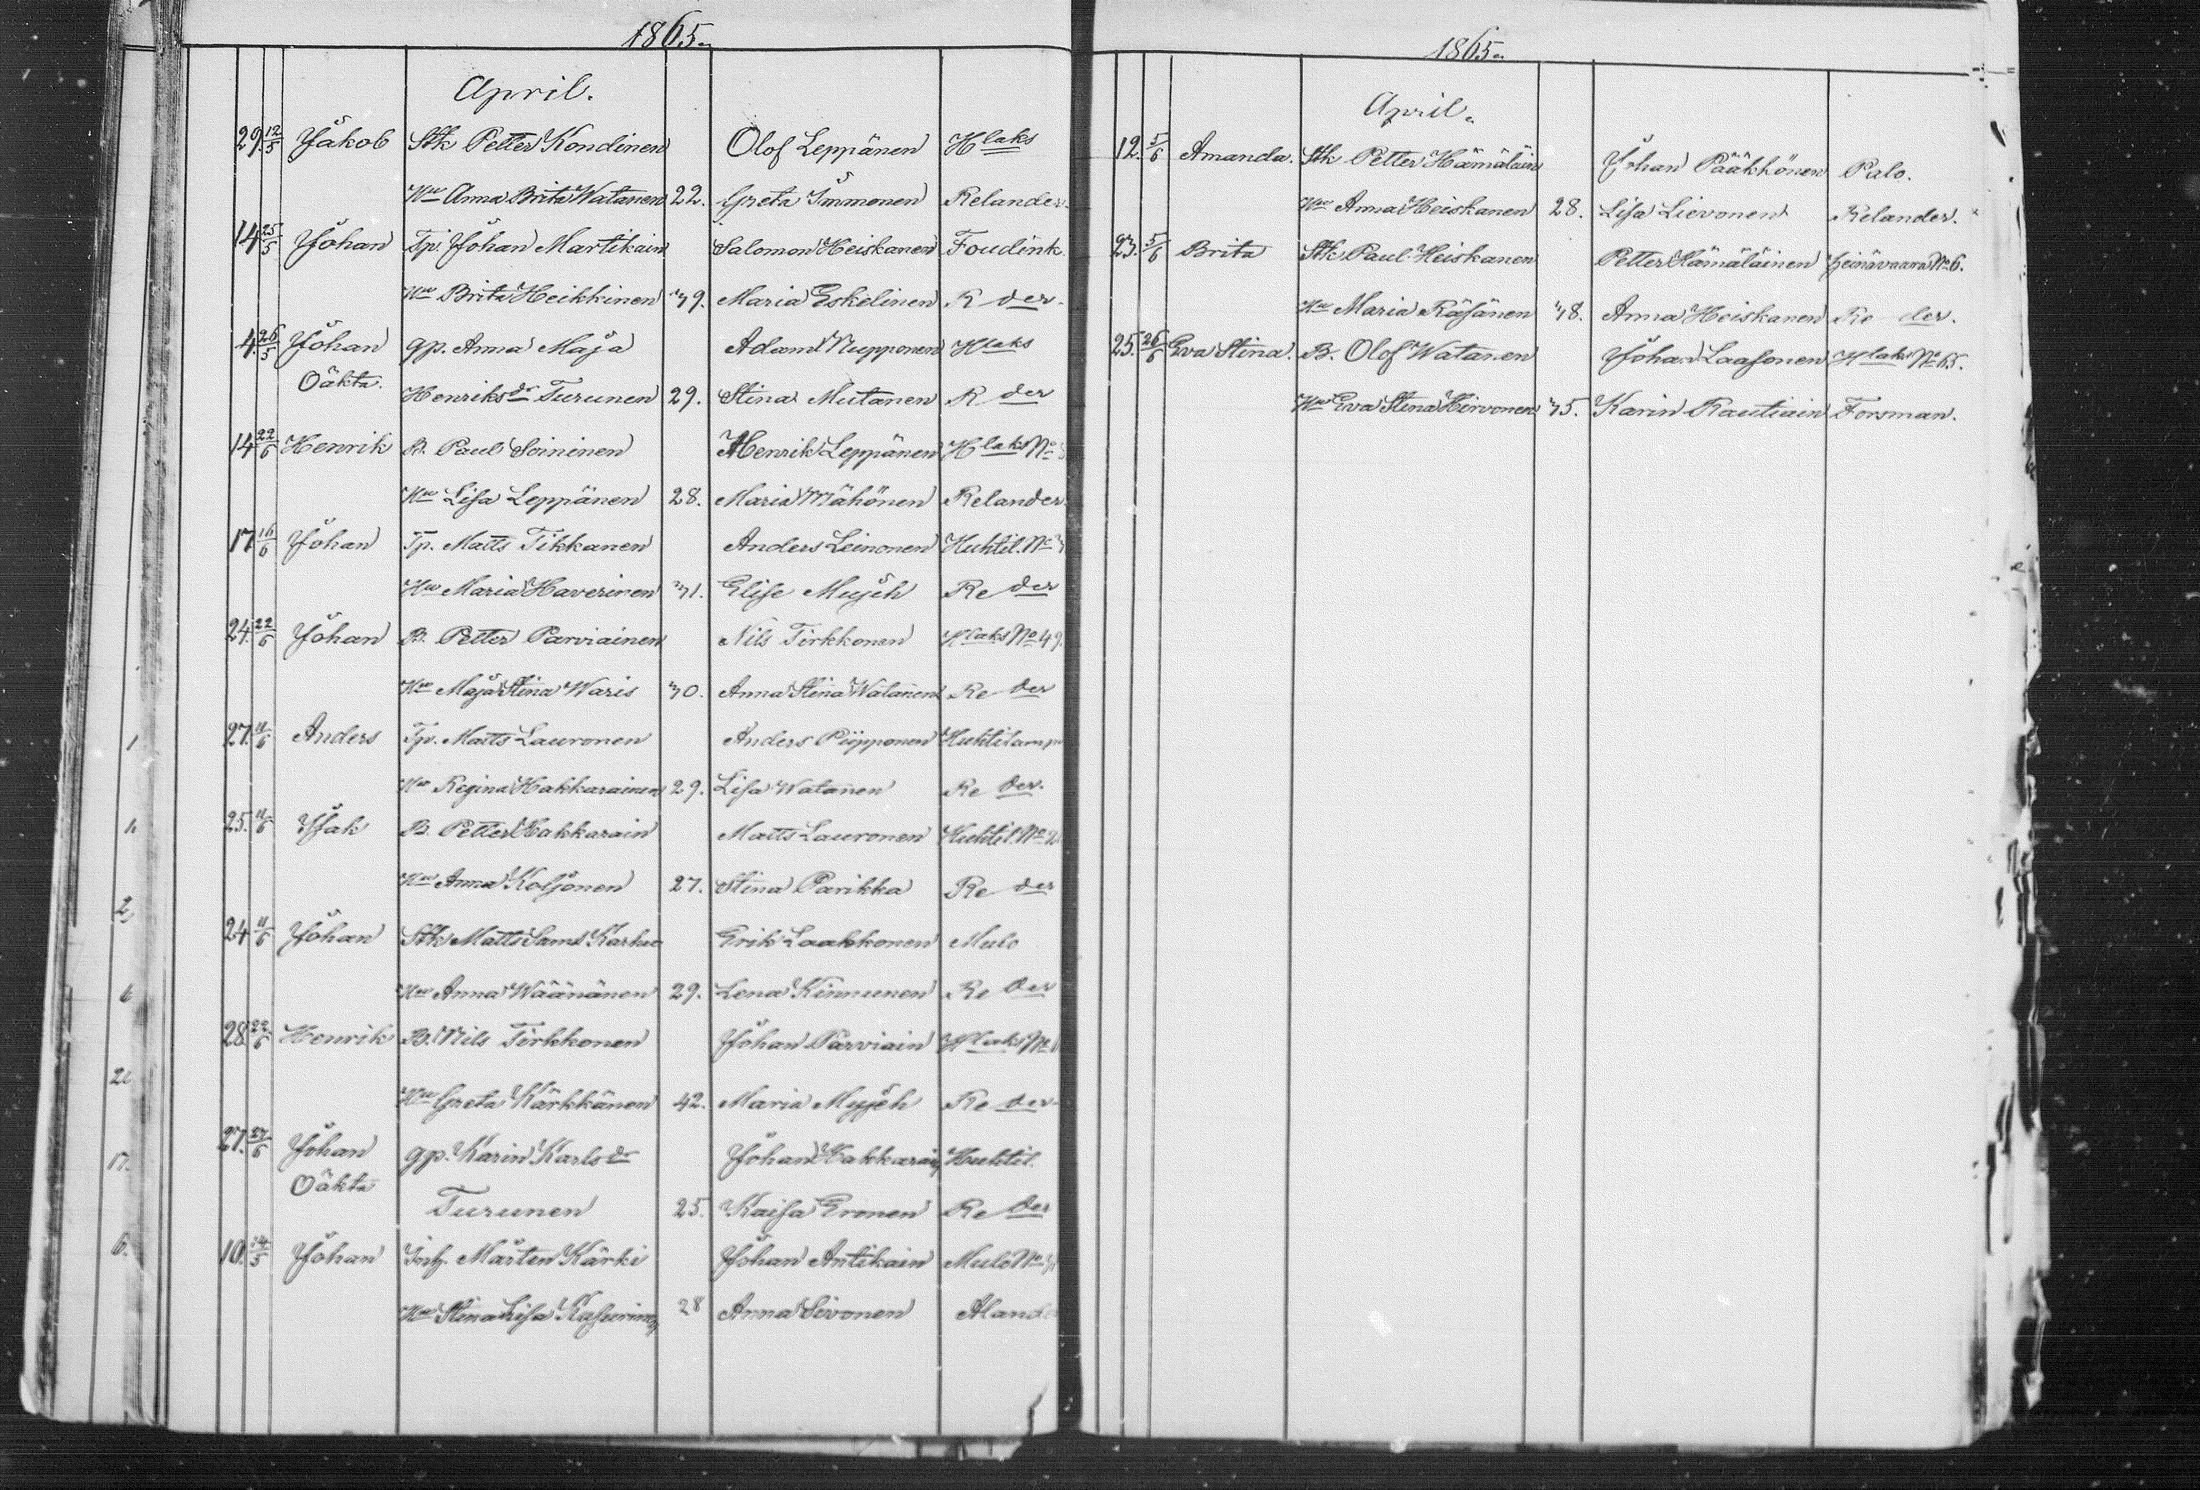 1865.
April.
29. 12/5 Jakob Stk Petter Kondinen Olof Leppänen Hlaks
Hu Anna Brita Watanen 22. Greta Immonen Relander.
14 25/5 Johan Tp. Johan Martikain Salomon Heiskanen Foudink.
Hu Brita Heikkinen 39. Maria Eskelinen R der.
4. 26/5 Johan gp. Anna Maja Adam Nupponen Hlaks
Oäkta. Henriksdr Turunen 29. Stina Mutanen R der
14 22/6 Henrik B. Paul Soininen Henrik Leppänen Hlaks No
Hu Lisa Leppänen 28. Maria Mähönen Relander.
17 16/6 Johan Tp. Matts Tikkanen Anders Leinonen Huhtil. No
Hu Maria Haverinen 31. Elise Mujeh Re der
24. 22/6 Johan B. Petter Parviainen Nils Tirkkonen Hlaks No 49.
Hu Maja Stina Waris 30. Anna Stina Watanen Re der
27. 11/6 Anders Tp. Matts Lauronen Anders Piipponen Huhtilamp
Hu Regina Hakkarainen 29. Lisa Watanen Re der.
25. 11/6 Isak B. Petter Hakkarain Matts Lauronen Huhtil. No
Hu Anna Koljonen 27. Stina Parikka Re der
24 11/6 Johan Stk Matts Sams Karhu Erik Laakkonen Mulo
Hu Anna Wäänänen 29. Lena Kinnunen Re der
28. 22/6 Henrik B. Nils Tirkkonen Johan Parviain Hlaks No
Hu Greta Kärkkänen 42. Maria Mujeh Re der
27. Johan gp. Karin Karlsdr Johan Hakkarain Huhtil.
Oäkta Turunen 25. Kaisa Eronen Re der
10. 14/5 Johan Inh. Mårten Kärki Johan Antikain Mulo No
Hu Stina Lisa Kasurinen 28 Anna Sivonen Aland
1865.
April.
12. 5/6 Amanda. Stk Petter Hämäläin Johan Pääkkönen Palo.
Hu Anna Heiskanen 28. Lisa Lievonen Relander.
23. 5/6 Brita Stk Paul Heiskanen Petter Hämäläinen Heinävaara No 6.
Hu Maria Räsänen 38. Anna Heiskanen Re der.
25. 26/6 Eva Stina. B. Olof Watanen Johan Laasonen Hlaks No 65.
Hu Eva Stina Hirvonen 35. Karin Rautiain Forsman.